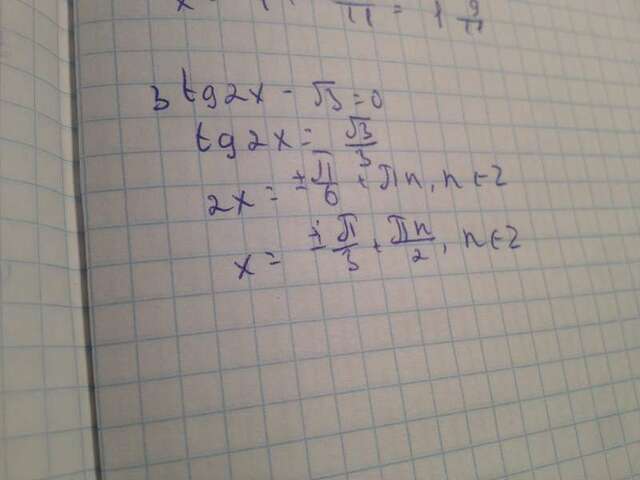 11 = 1 9/11
3 tg2x - √3 = 0
tg2x = √3/3
2x = ±π/6 + πn, n∈Z
x = ±π/3 + πn/2, n∈Z